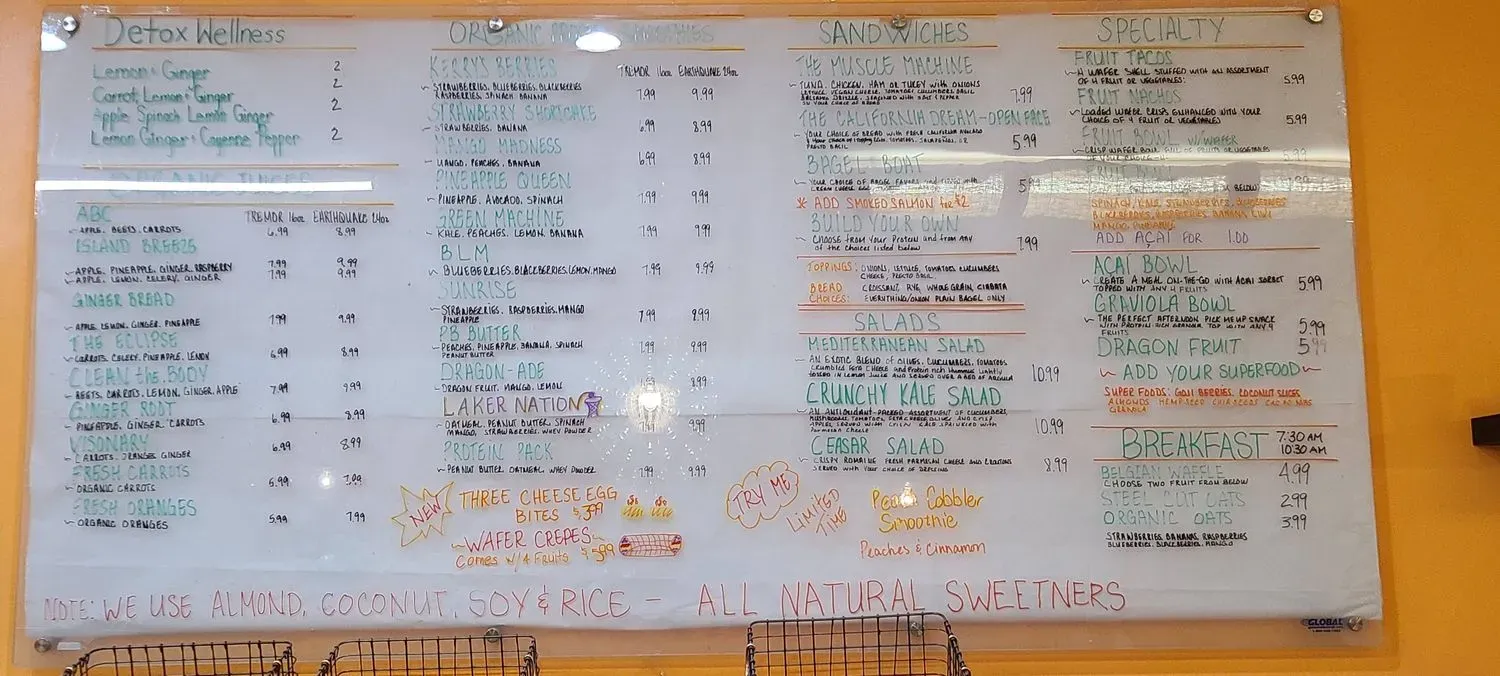 Detox Wellness
Lemon Ginger 2
Carrot, Lemon Ginger 2
Apple Spinach Lemon Ginger 2
Lemon Ginger Cayenne Pepper 2
ORGANIC JUICES
ABC TREMOR 16oz EARTHQUAKE 24oz
APPLE, BEETS, CARROTS 6.99 8.99
ISLAND BREEZE
APPLE, PINEAPPLE, GINGER, RASPBERRY 7.99 9.99
APPLE, LEMON, CELERY, GINGER 7.99 9.99
GINGER BREAD
APPLE, LEMON, GINGER, PINEAPPLE 7.99 9.99
THE ECLIPSE
CARROTS, CELERY, PINEAPPLE, LEMON 6.99 8.99
CLEAN the BODY
BEETS, CAROTS, LEMON, GINGER, APPLE 7.99 9.99
GINGER ROOT
PINEAPPLE, GINGER, CARROTS 6.99 8.99
VISONARY
CARROTS, ORANGES GINGER 6.99 8.99
FRESH CARROTS
ORGANIC CARROTS 5.99 7.99
FRESH ORANGES
ORGANIC ORANGES 5.99 7.99
ORGANIC
KERRY'S BERRIES TREMOR 16oz EARTHQUAKE 24oz
STRAWBERRIES, BLUEBERRIES, BLACKBERRIES
RASPBERRIES, SPINACH BANANA 7.99 9.99
STRAWBERRY SHORTCAKE
STRAWBERRIES, BANANA 6.99 8.99
MANGO MADNESS
MANGO, PEACHES, BANANA 6.99 8.99
PINEAPPLE QUEEN
PINEAPPLE, AVOCADO, SPINACH 7.99 9.99
GREEN MACHINE
KALE, PEACHES, LEMON, BANANA 7.99 9.99
BLM
BLUEBERRIES, BLACKBERRIES, LEMON, MANGO 7.99 9.99
SUNRISE
STRAWBERRIES, RASPBERRIES, MANGO
PINEAPPLE 7.99 9.99
PB BUTTER
PEACHES, PINEAPPLE, BANANA, SPINACH
PEANUT BUTTER 7.99 9.99
DRAGON-ADE
DRAGON FRUIT, MANGO, LEMON 8.99
LAKER NATION
OATMEAL, PEANUT BUTTER, SPINACH
MANGO, STRAWBERRIES, WHEY POWDER 9.99
PROTEIN PACK
PEANUT BUTTER, OATMEAL, WHEY POWDER 7.99 9.99
NEW
THREE CHEESE EGG
BITES $3.99
WAFER CREPES
Comes w/4 FRUITS $5.99
SANDWICHES
THE MUSCLE MACHINE
TUNA, CHICKEN, HAM OR TURKEY WITH ONIONS
LETTUCE, VEGAN CHEESE, TOMATOES, CUCUMBERS, BASIL
BALSAMIC DRIZZLE, SEASONED WITH SALT & PEPPER
ON YOUR CHOICE OF BREAD 7.99
THE CALIFORNIA DREAM-OPEN FACE
YOUR CHOICE OF BREAD WITH FRESH CALIFORNIA AVOCADO
TOMATOES, JALAPEÑOS, OR
PRESTO BASIL 5.99
BAGEL BOAT
YOUR CHOICE OF BAGEL
CREAM CHEESE
* ADD SMOKED SALMON for $2
BUILD YOUR OWN
CHOOSE FROM YOUR PROTEIN AND FROM ANY
OF THE CHOICES LISTED BELOW 7.99
TOPPINGS: ONIONS, LETTUCE, TOMATOES, CUCUMBERS
CHEESE, PRESTO BASIL
BREAD CROISSANT, RYE, WHOLE GRAIN, CIABATA
CHOICES: EVERYTHING/ONION PLAIN BAGEL ONLY
SALADS
MEDITERRANEAN SALAD
AN EXOTIC BLEND OF OLIVES, CUCUMBERS, TOMATOES
CRUMBLED FETA CHEESE AND PROTEIN RICH HUMMUS LIGHTLY
TOSSED IN LEMON JUICE AND SERVED OVER A BED OF ARUGULA 10.99
CRUNCHY KALE SALAD
AN ANTIOXIDANT-PACKED ASSORTMENT OF CUCUMBERS
MUSHROOMS, TOMATOES, FETA CHEESE, OLIVES AND CRISP
APPLES, SERVED WITH KALE SPRINKLED WITH
PARMESAN CHEESE 10.99
CEASAR SALAD
CRISPY ROMAINE FRESH PARMESAN CHEESE AND CROUTONS
SERVED WITH YOUR CHOICE OF DRESSING 8.99
TRY ME
LIMITED
TIME
Peach Cobbler
Smoothie
Peaches & Cinnamon
SPECIALTY
FRUIT TACOS
A WAFER SHELL STUFFED WITH AN ASSORTMENT
OF 4 FRUIT OR VEGETABLES: 5.99
FRUIT NACHOS
LOADED WAFER CRISPS ENHANCED WITH YOUR
CHOICE OF 4 FRUIT OR VEGETABLES 5.99
FRUIT BOWL w/WAFER
CRISP WAFER BOWL FULL OF FRUITS OR VEGETABLES
OF YOUR CHOICE 5.99
BELOW)
SPINACH, KALE, STRAWBERRIES, BLUEBERRIES
BLACKBERRIES, RASPBERRIES, BANANA, KIWI
MANGO, PINEAPPLE
ADD ACAI FOR 1.00
ACAI BOWL
CREATE A MEAL ON-THE-GO WITH ACAI SORBET
TOPPED WITH ANY 4 FRUITS 5.99
GRAVIOLA BOWL
THE PERFECT AFTERNOON PICK ME UP SNACK
WITH PROTEIN-RICH GRANOLA TOP WITH ANY 4
FRUITS 5.99
DRAGON FRUIT 5.99
ADD YOUR SUPERFOOD
SUPER FOODS: GOJI BERRIES, COCONUT SLICES
ALMONDS HEMPSEED CHIA SEEDS CACAO NIBS
GRANOLA
BREAKFAST 7:30 AM
10:30 AM
BELGIAN WAFFLE 4.99
CHOOSE TWO FRUIT FROM BELOW
STEEL CUT OATS 2.99
ORGANIC OATS 3.99
STRAWBERRIES, BANANAS, RASPBERRIES
BLUEBERRIES, BLACKBERRIES, MANGO
NOTE: WE USE ALMOND, COCONUT, SOY & RICE - ALL NATURAL SWEETNERS
GLOBAL